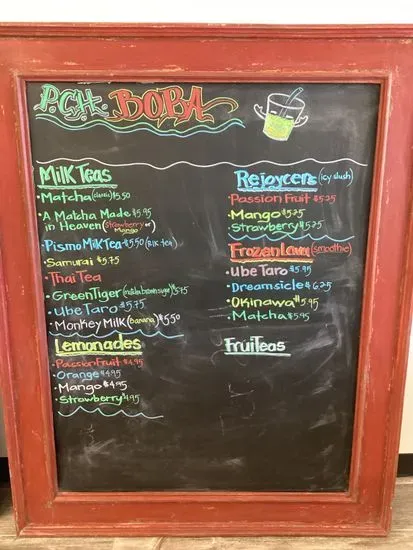 P.C.H. BOBA
Milk Teas
• Matcha (classic) $5.50
• A Matcha Made $5.95
in Heaven (Strawberry or
Mango)
• Pismo Milk Tea $5.50 (Blk tea)
• Samurai $5.75
• Thai Tea
• Green Tiger (matcha brown sugar) $5.75
• Ube Taro $5.75
• Monkey Milk (banana) $5.50
Lemonades
• Passion Fruit $4.95
• Orange $4.95
• Mango $4.95
• Strawberry $4.95
Rejoycers (icy slush)
• Passion Fruit $5.25
• Mango $5.25
• Strawberry $5.25
Frozen Lava (smoothie)
• Ube Taro $5.95
• Dreamsicle $6.25
• Okinawa $5.95
• Matcha $5.95
FruiTeas